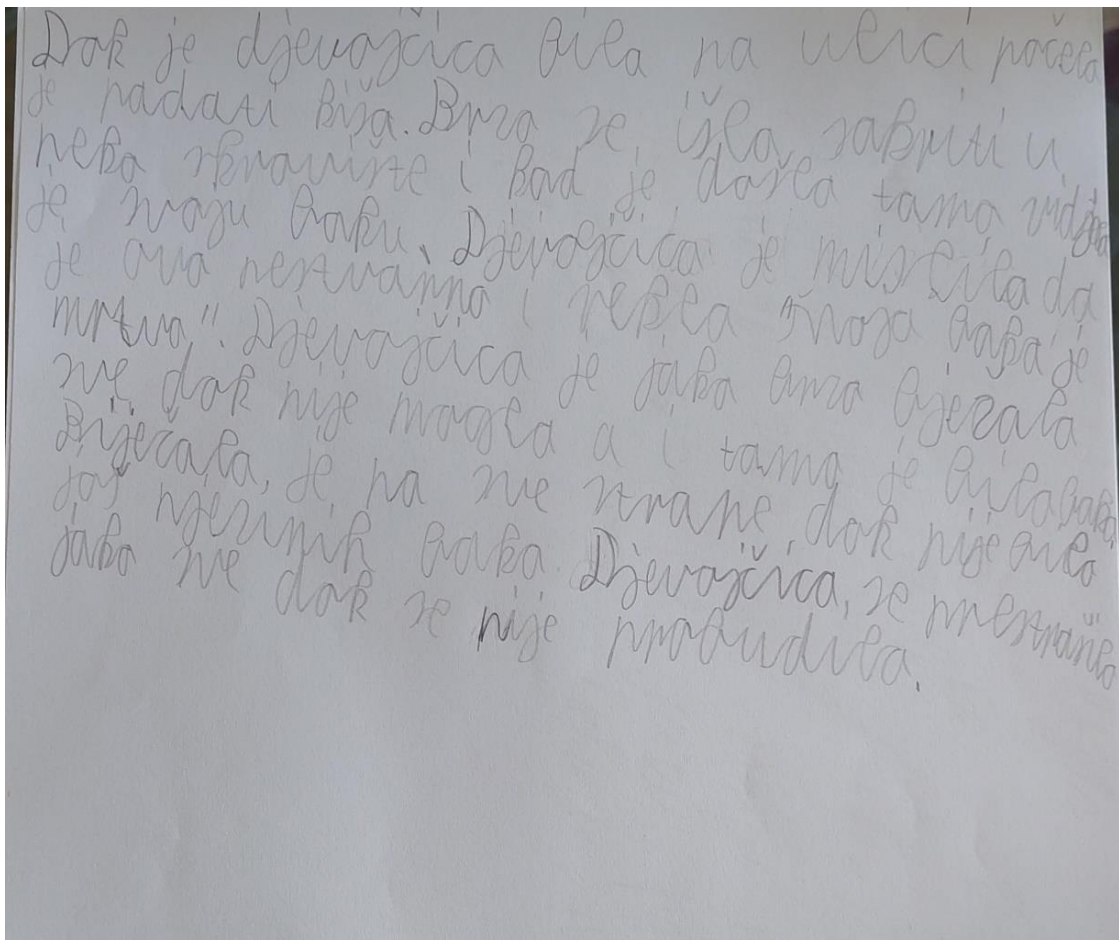 Dok je djevojčica bila na ulici počela
je padati kiša. Brzo se išla sakriti u
neko skrovište i kad je došla tamo vidjela
je svoju baku. Djevojčica je mislila da
je ovo nestvarno i rekla "moja baka je
mrtva". Djevojčica je jako brzo bježala
sve dok nije mogla a i tamo je bila baka.
Bježala je na sve strane dok nije bilo
još njezinih baka. Djevojčica se prestrašila
jako sve dok se nije probudila.